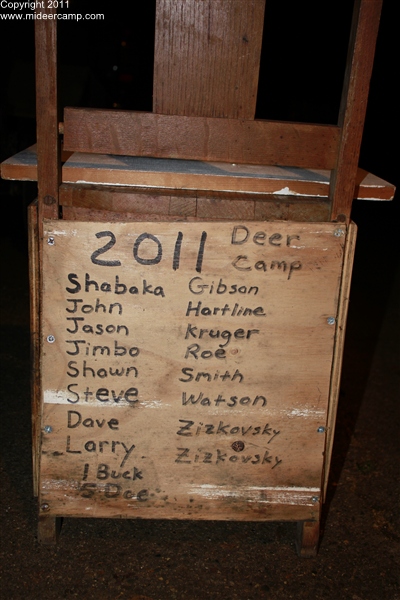 Copyright 2011
www.mideercamp.com
2011 Deer Camp
Shabaka Gibson
John Hartline
Jason Kruger
Jimbo Roe
Shawn Smith
Steve Watson
Dave Zizkovsky
Larry Zizkovsky
1 Buck
5 Doe